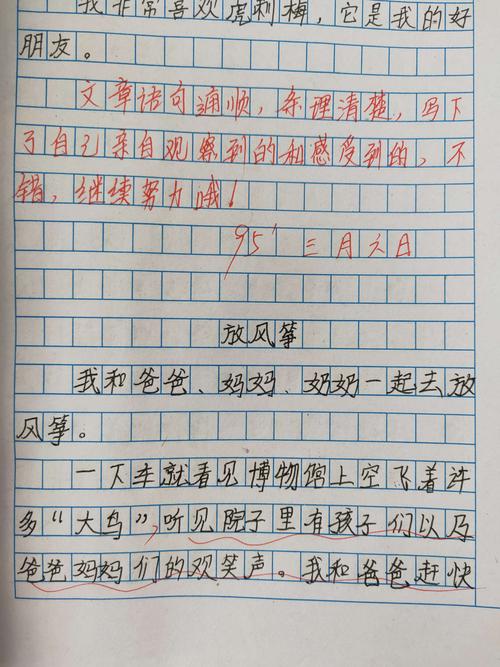 我非常喜欢虎刺梅，它是我的好
朋友。
文章语句通顺，条理清楚，写下
了自己亲自观察到的和感受到的，不
错，继续努力哦！
95' 三月六日
放风筝
我和爸爸、妈妈、奶奶一起去放
风筝。
一下车就看见博物馆上空飞着许
多“大鸟”，听见院子里有孩子们以及
爸爸妈妈们的欢笑声。我和爸爸赶快